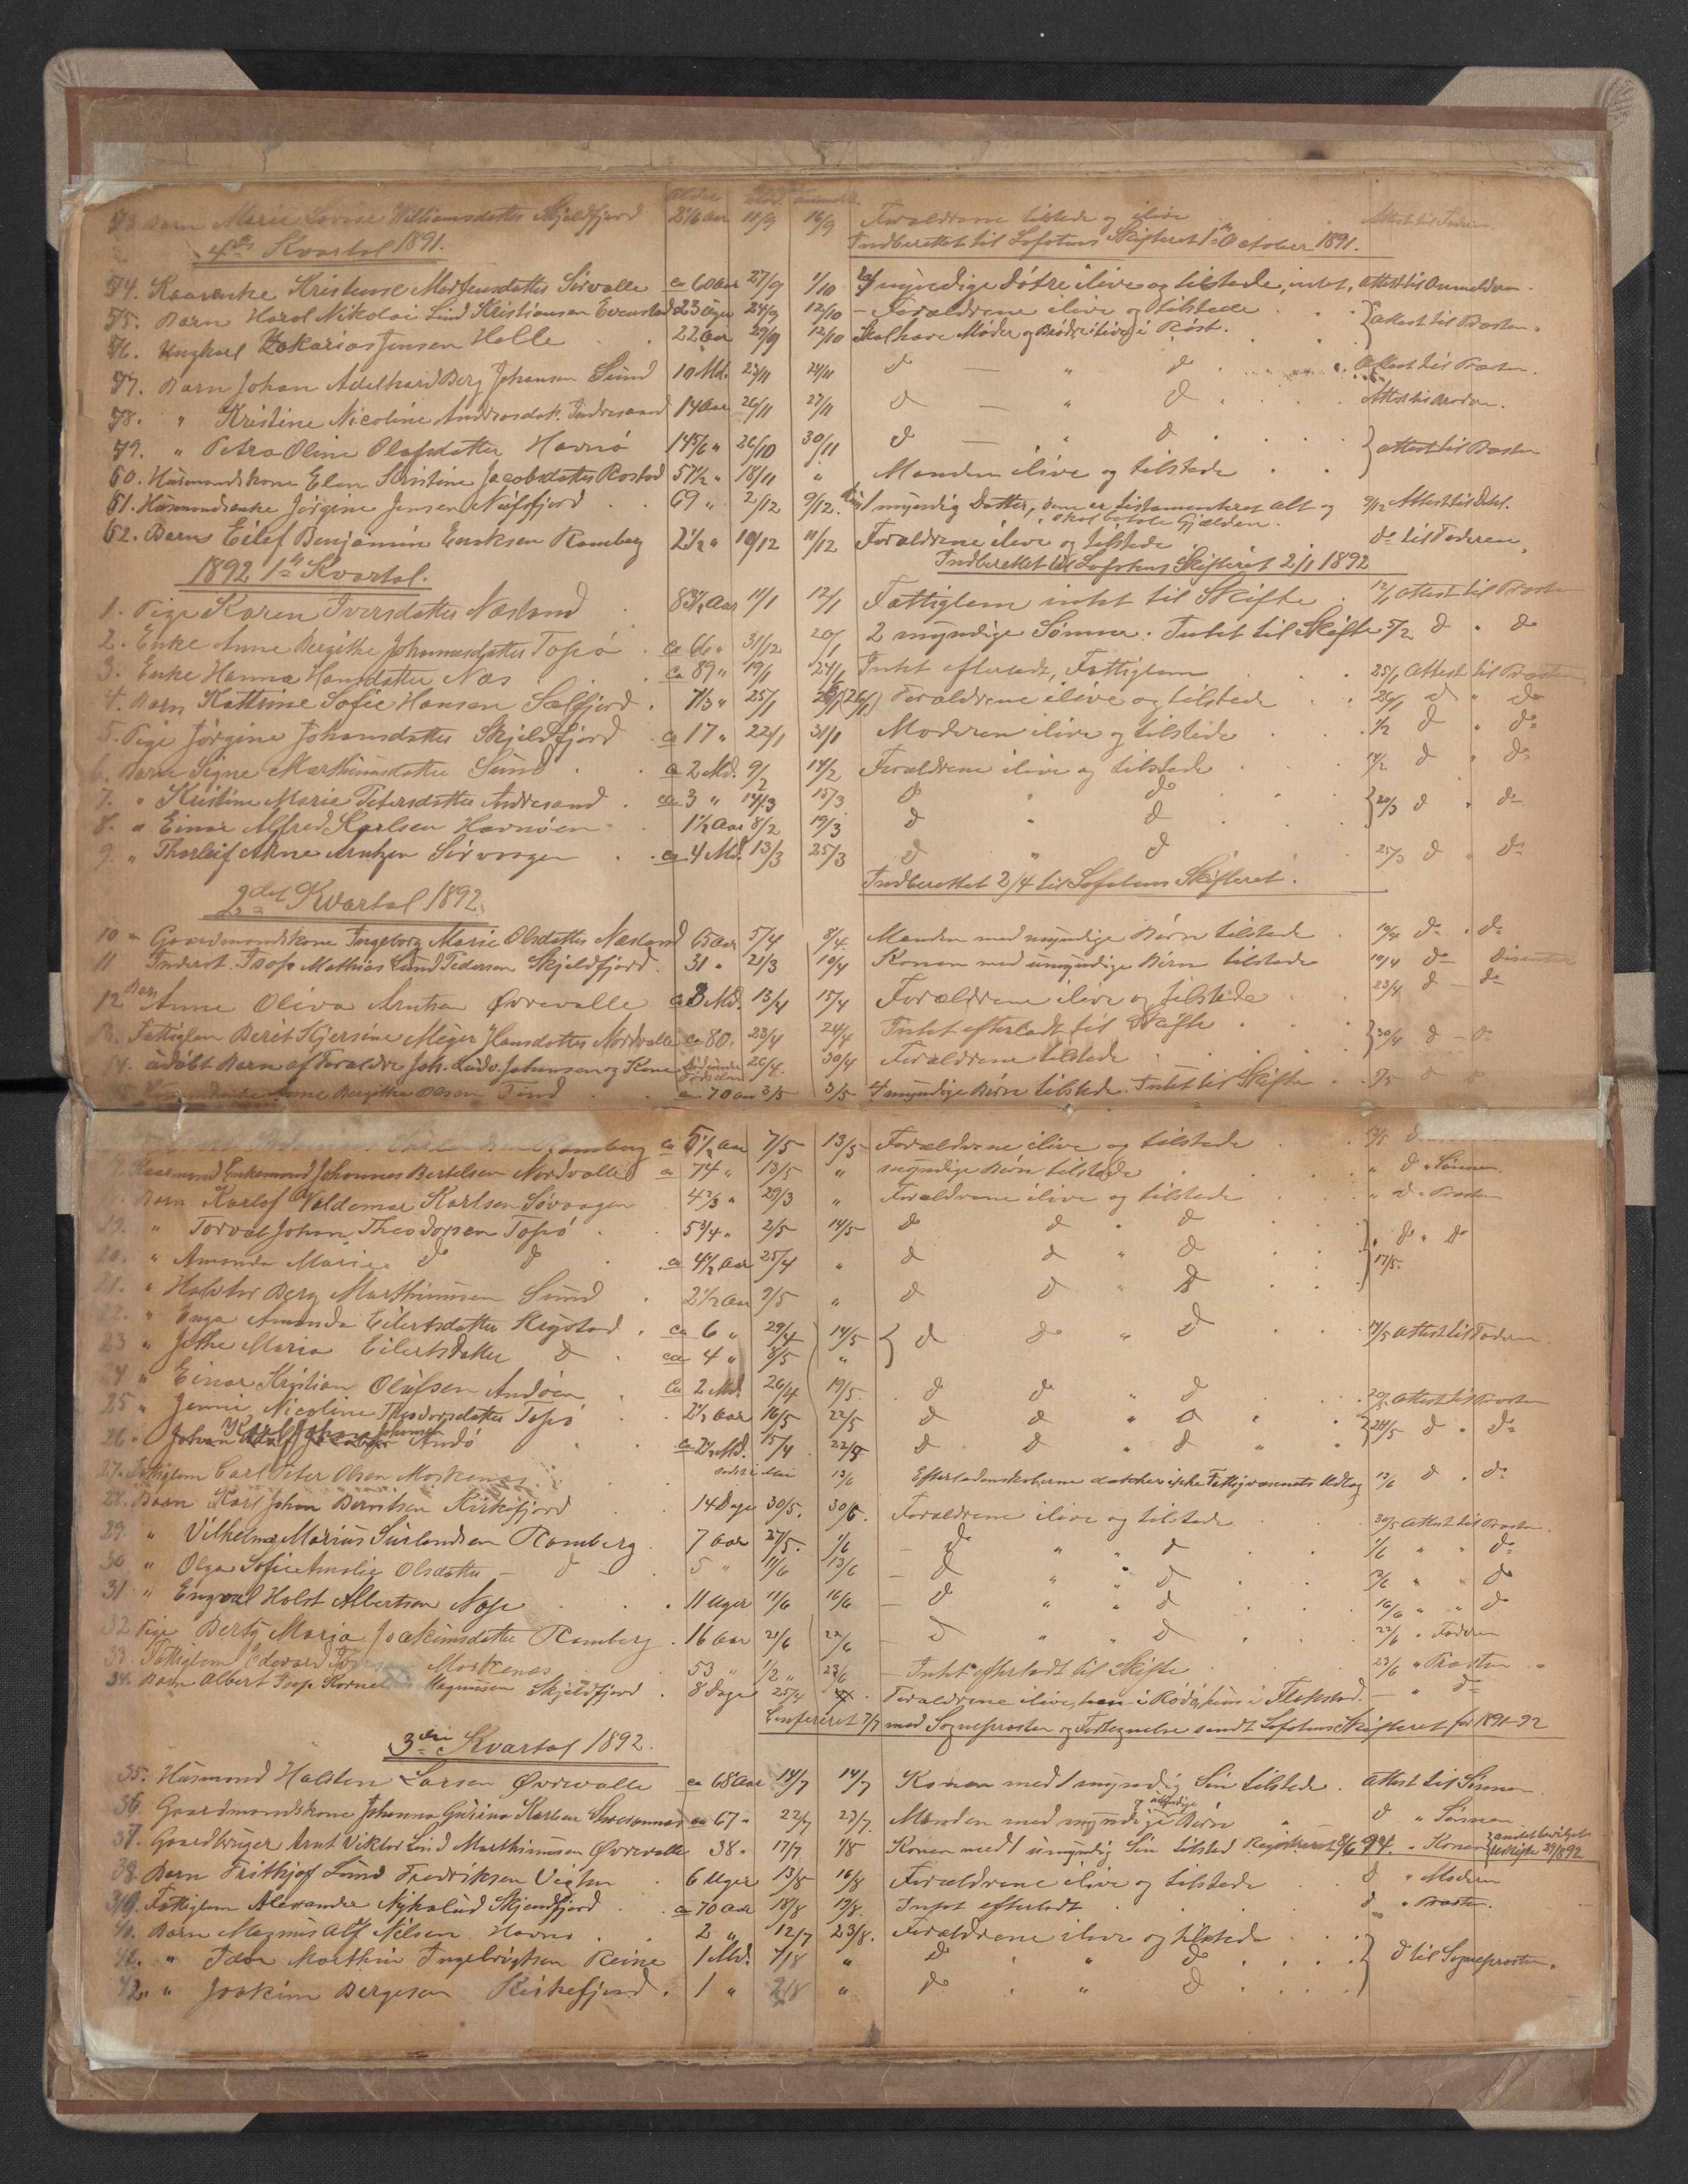 Alder død anmeldt
53 Barn Marie Lovise Williamsdatter Skjeldfjord 2 1/6 Aar 11/9 16/9 Forældrene tilstede og ilive Attest til Faderen
4de Kvartal 1891. Indberettet til Lofotens Skifteret 1ste October 1891.
54. Kaarenke Kristense Mortensdatter Sörvolle ca 60 Aar 27/9 1/10 myndige Döttre ilive og tilstede, intet, Attest til Anmelderen.
55. Barn Harol Nikolai Lind Kristiansen Evenstad 23 Uger 24/9 12/10 - Forældrene ilive og tilstede
56. Ungkarl Zakarias Jensen Holle 22 Aar 29/9 12/10 Skal have Moder og Brödre ilive i Röst. Attest til Præsten.
57. Barn Johan Adelhard Berg Johansen Sund 10 Md. 23/11 24/11 do — " do Attest til Præsten.
58. " Kristine Nicoline Andreasdat. Indresand 14 Aar 26/11 27/11 do — " do Attest til Broder.
59. " Petra Oline Olafsdatter Havnö 14 5/6 " 26/10 30/11 do — " do
60. Husmandskone Elen Kristine Jacobsdatter Rostad 57 1/2 " 18/11 " Manden ilive og tilstede Attest til Præsten
61. Husmandsenke Jörgine Jensen Nufsfjord 69 " 2/12 9/12 1 myndig Datter, som er testamenteret alt og 9/12 Attest til Dat.
skal betale Gjælden.
62. Barn Eilef Benjamin Eriksen Ramberg 2 1/2 " 10/12 11/12 Forældrene ilive og tilstede do til Faderen.
1892 1ste Kvartal. Indberettet til Lofotens Skifteret 2/1 1892
1. Pige Karen Iversdatter Næsland 83 1/2 Aar 11/1 12/1 Fattiglem intet til Skifte 12/1 Attest til Præsten
2. Enke Anne Bergithe Johannesdatter Topsö ca 66 " 31/12 20/1 2 myndige Sönner. Intet til Skifte 5/2 do " do
3. Enke Hanna Hansdatter Næs ca 89 " 19/1 24/1 Intet efterladt, Fattiglem 25/1 Attest til Præsten
4. Barn Kathrine Sofie Hansen Selfjord 7 1/3 " 25/1 26/1 (26/1) Forældrene ilive og tilstede 26/1 do " do
5. Pige Jörgine Johansdatter Skjeldfjord ca 17 " 22/1 31/1 Moderen ilive og tilstede 1/2 do " do
6. Barn Signe Marthinusdatter Sund ca 2 Md. 9/2 14/2 Forældrene ilive og tilstede 14/2 do " do
7. " Kristine Marie Petersdatter Andresand ca 3 " 14/3 15/3 do " do
8. " Einar Alfred Karlsen Havnöen 1 1/2 Aar 8/2 19/3 do " do 20/3 do " do
9. " Thorleif Arne Arntzen Sörvaagen ca 4 Md. 13/3 25/3 do " do 25/3 do " do
2det Kvartal 1892. Indberettet 2/4 til Lofotens Skifteret.
10 " Gaardmandskone Ingeborg Marie Olsdatter Næsland 65 Aar 5/4 8/4. Manden med myndige Börn tilstede 10/4 do " do
11 Inderst. Isop Mathias Lund Pedersen Skjeldfjord 31 " 21/3 10/4 Konen med umyndige Börn tilstede 10/4 do — Dissenter
12 Barn Anne Oliva Arntsen Övrevolle ca 3 Md. 13/4 15/4 Forældrene ilive og tilstede 23/4 do — do
13. Fattiglem Beret Kjersine Meyer Hansdatter Nordvolle ca 80. 23/4 24/4 Intet efterladt til Skifte
14. udöbt Barn af Forældre Joh. Ludv. Johansen og Kone 26/4. 30/4 Forældrene tilstede 30/4 do — do
Anne Bergithe Olsen Tind ca 70 Aar 3/5 3/5 4 myndige Börn tilstede. Intet til Skifte 7/5 do
Ramberg ca 5 1/2 Aar 7/5 13/5 Forældrene ilive og tilstede 13/5 do
Enkemand Johannes Bertelsen Nordvolle ca 74 " 13/5 " myndige Börn tilstede " do " Sönnen
Barn Karlof Valdemar Karlsen Sövaagen 4 2/3 " 29/3 " Forældrene ilive og tilstede " do " Præsten
19. " Torval Johan Theodorsen Topsö 5 3/4 " 2/5 14/5 do do " do
20. " Amanda Marie do do ca 4 1/2 Aar 25/4 " do do " do 17/5. do " do
21. " Halvtor Berg Marthinusen Sund 2 1/2 Aar 9/5 " do do " do
22. " Enga Amanda Eilertsdatter Krystad ca 6 " 29/4 14/5
23 " Jethe Maria Eilertsdatter do ca 4 " 8/5 " do do " do 17/5 Attest til Faderen
24 " Einar Kristian Olufsen Andöen ca 2 Md. 26/4 19/5. do do " do 20/5 Attest til Præsten
25 " Jenni Nicoline Theodorsdatter Topsö 2 1/2 Aar 16/5 22/5 do do " do
26. " Karl Johan Johansen Andö ca 2 1/2 Md. 15/4 22/5 do do " do 24/5 do " do
27. Fattiglem Carl Peter Olsen Moskenæs död i Mai 13/6 Efterladenskaberne dækker ikke Fattigvæsenets Udlæg 13/6 do " do
28. Barn Karl Johan Berntsen Kirkefjord 14 Dage 30/5. 30/5. Forældrene ilive og tilstede 30/5 Attest til Præsten.
29. " Vilhelm Marius Surlandsen Ramberg 7 Aar 27/5. 1/6 - do " " do 1/6 " " do
30 " Olga Sofie Amalie Olsdatter - do - 5 " 11/6 13/6 - do " " do 13/6 " " do
31 " Engvål Holst Albertsen Næss 11 Uger 11/6 16/6 - do " " do 16/6 " " do
32 Pige Berty Maria Joakimsdatter Ramberg 16 Aar 21/6 22/6 - do " " do 22/6 " Faderen
33. Fattiglem Edevard Moskenæs 53 " 1/2 " 23/6 - Intet efterladt til Skifte 23/6 " Præsten
34. Barn Albert Isop Kornelius Magnusen Skjeldfjord 8 Dage 25/4 Forældrene ilive, han i Rödö, hun i Flakstad. — " do
Confereret 7/7 med Sognepræsten og Fortegnelse sendt Lofotens Skifteret for 1891-92
3die Kvartal 1892.
35. Husmand Halsten Larsen Övrevolle ca 68 Aar 14/7 14/7 Konen med 1 myndig Sön tilstede. Attest til Sönnen
36. Gaardmandskone Johanna Gurina Karlsen ca 67 " 22/7 23/7. Manden med myndige og umyndige Börn " do " Sönnen
37. Gaardbruger Arnt Viktor Lind Marthinusen Övrevolle 38 " 17/7 1/8 Konen med 1 umyndig Sön tilsted Registreret 8/6 94. " Konen
38. Barn Frithjof Lund Fredriksen Vigten 6 Uger 13/8 16/8 Forældrene ilive og tilstede do " Moderen
39. Fattiglem Alexander Nykolud Skjendfjord ca 70 Aar 18/8 19/8. Intet efterladt do " Præsten.
40. Barn Magnus Alf Nilsen Havnö 2 " 12/7 23/8. Forældrene ilive og tilstede
41. " Idar Marthin Ingebrigtsen Reine 1 Md. 7/8 " do " do do til Sognepræsten.
42. " Joakim Bergesen Kirkefjord. 1 " 2/8 " do " do